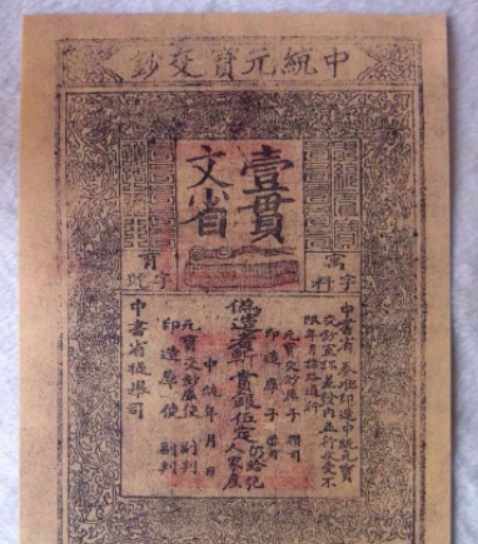 中統元寳交鈔
壹貫
文省
字
字
中書省 奏准印造中統元寳
交鈔宣課差發內並行收受不
限年月諸路通行
元寳交鈔庫子 攢司
印造庫子 攢司
偽造者斬賞銀伍定仍給犯
人家産
中統年月日
元寳交鈔庫使 副判
印造庫使 副判
中書省提舉司